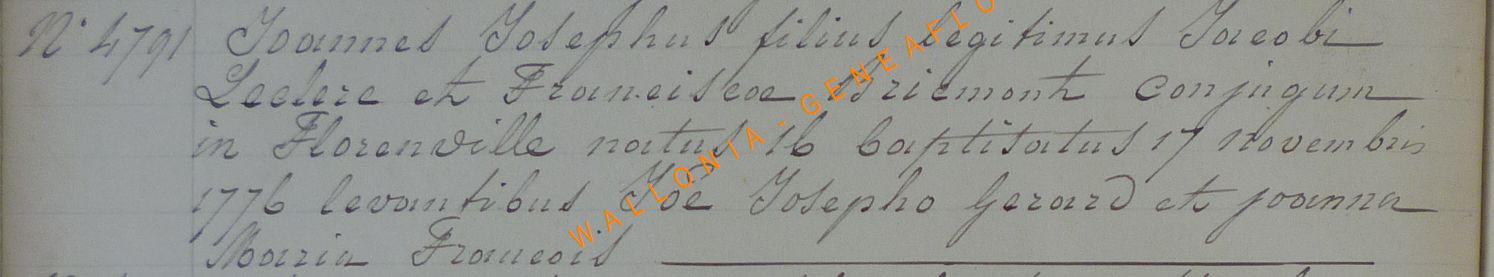 N° 4791 Joannes Josephus filius legitimus Jacobi
Leclere et Franciscae Briemont conjugum
in Florenville natus 16 baptisatus 17 novembris
1776 levantibus Joe Josepho Gerard et joanna
Maria Francois
WALLONIA-GENEAFLO